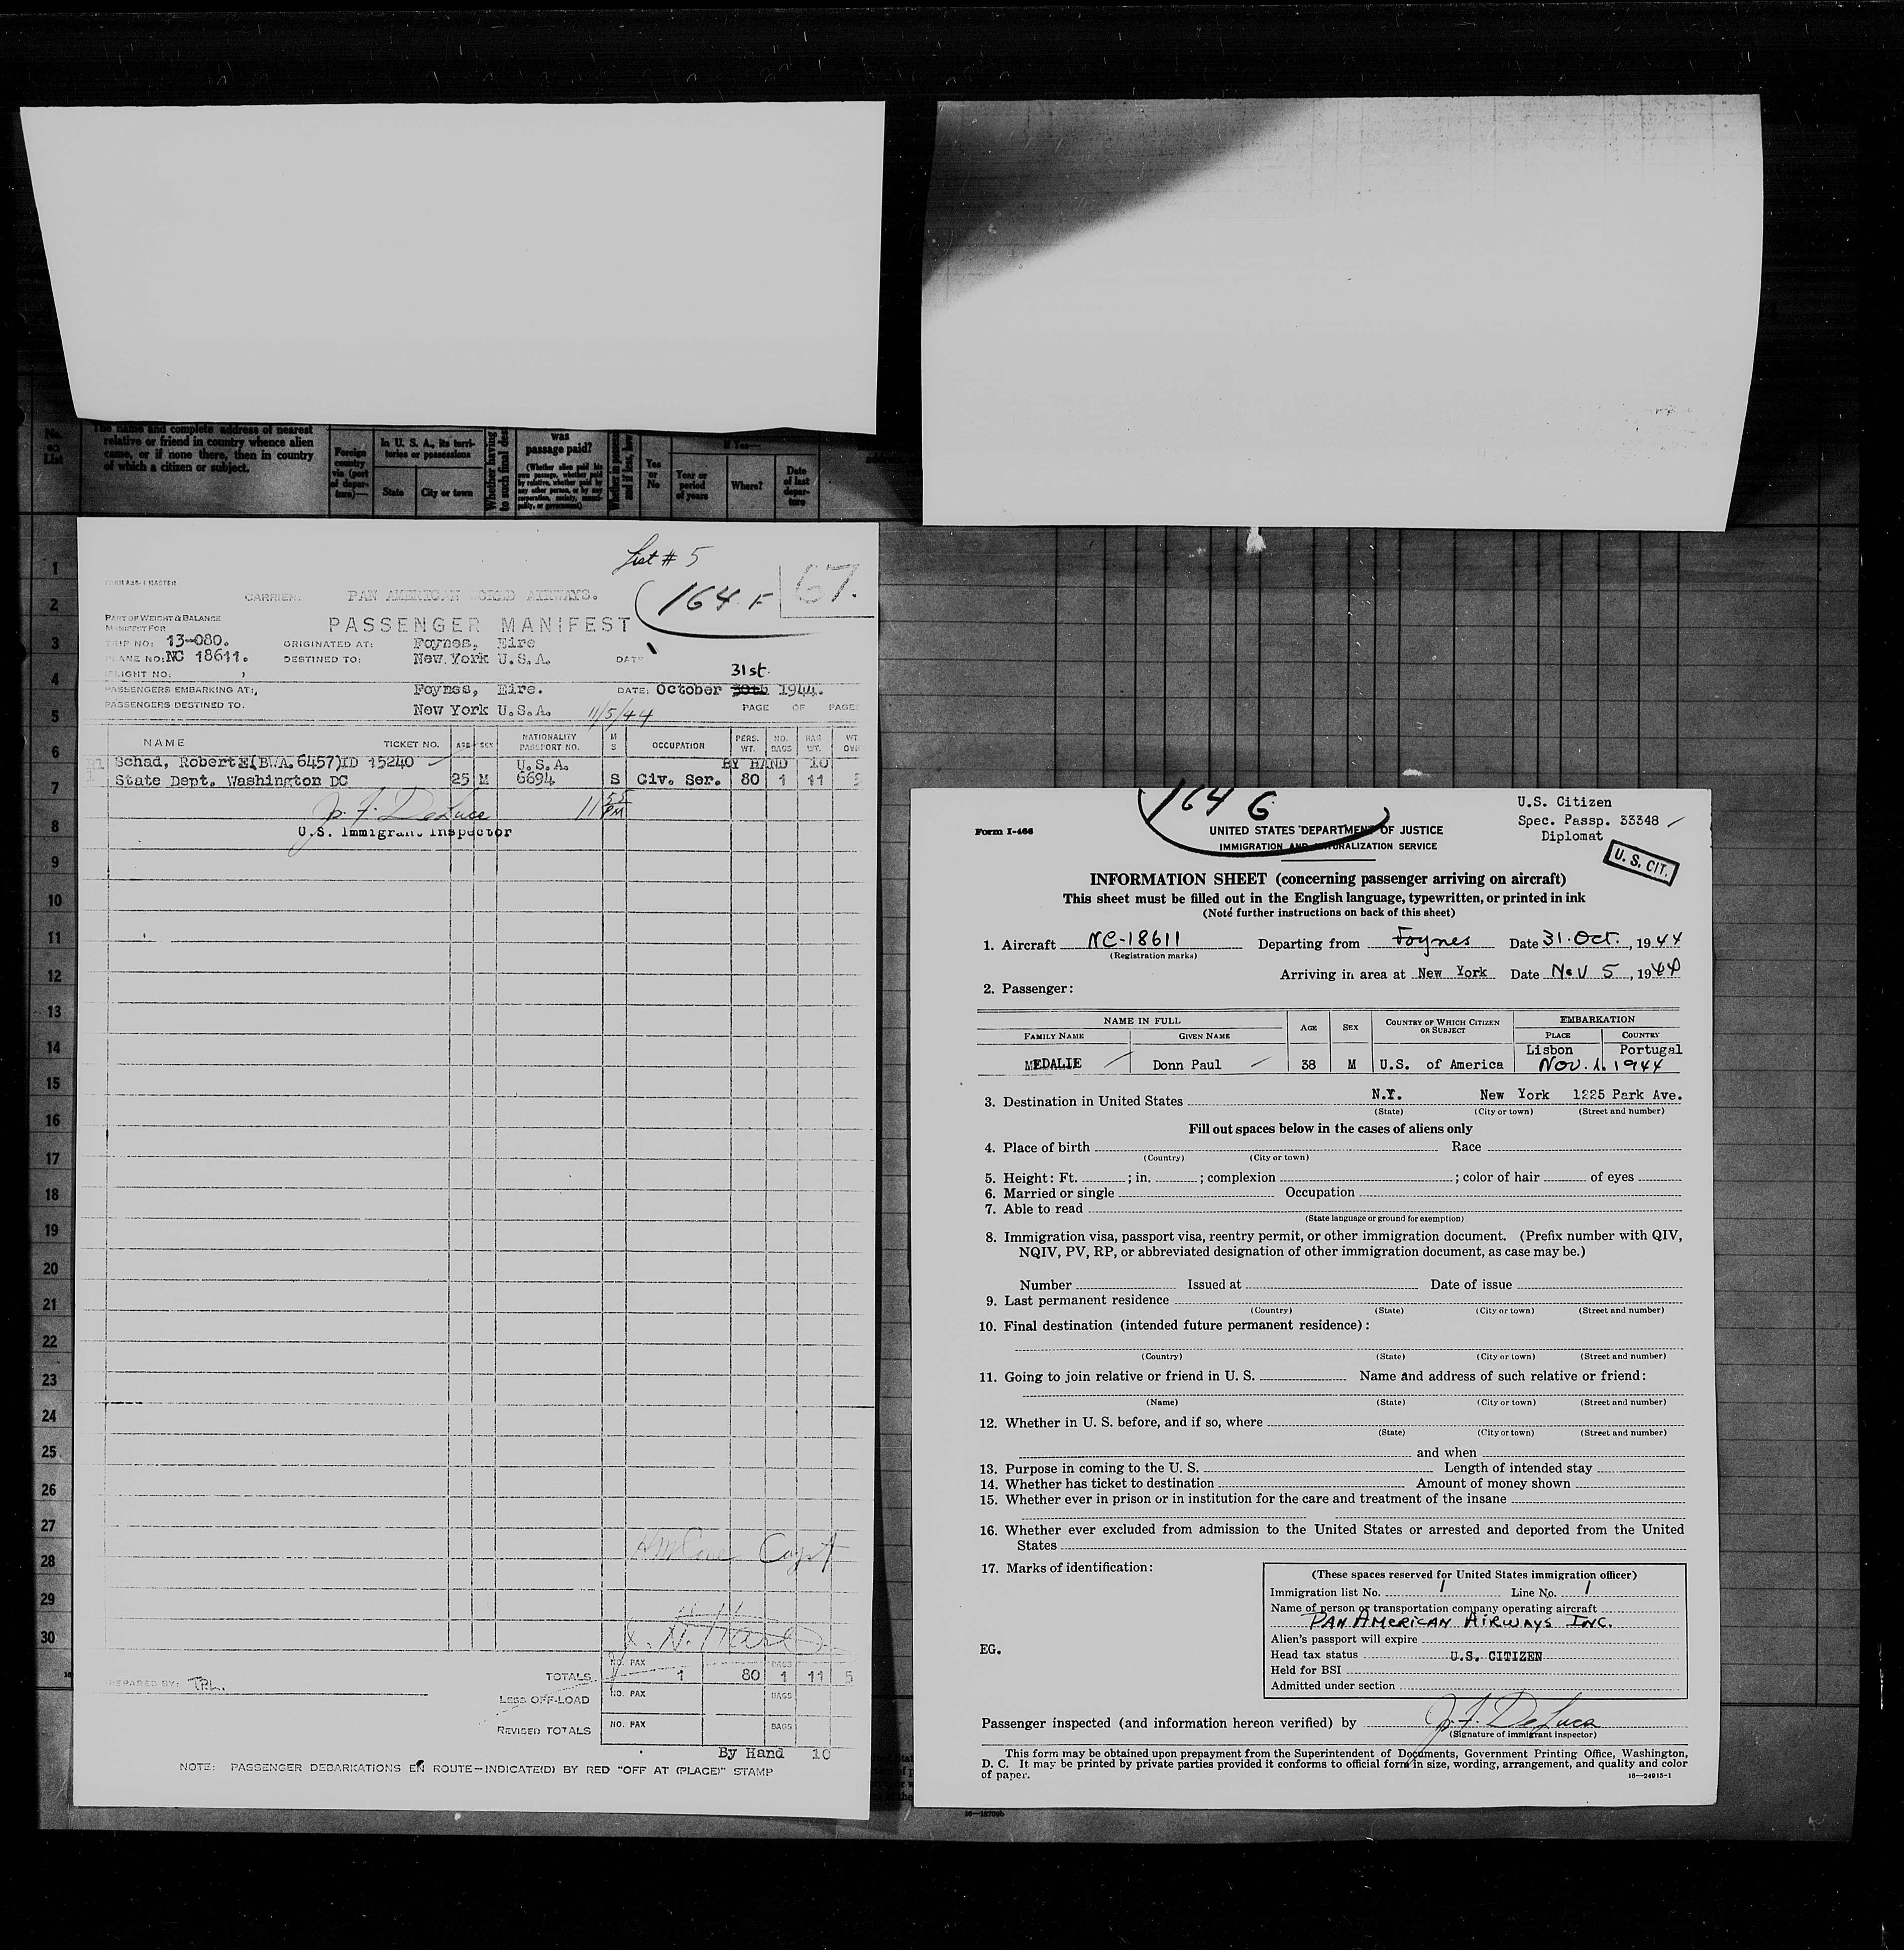 No. on List
The name and complete address of nearest
relative or friend in country whence alien
came, or if none there, then in country
of which a citizen or subject.
Foreign
country
via (port
of depar-
ture)—
In U. S. A., its terri-
tories or possessions
State
City or town
Whether having
to such final des
was
passage paid?
(Whether alien paid his
own passage, whether paid
by relative, whether paid by
any other person, or by any
corporation, society, munici-
pality, or government)
and if less, how
Yes
or
No
If Yes—
Year or
period
of years
Where?
Date
of last
depar-
ture
1
2
3
4
5
6
7
8
9
10
11
12
13
14
15
16
17
18
19
20
21
22
23
24
25
26
27
28
29
30
List # 5
164 F
67.
CARRIER: PAN AMERICAN WORLD AIRWAYS.
PART OF WEIGHT & BALANCE
MANIFEST FOR
PASSENGER MANIFEST
TRIP NO: 13-080. ORIGINATED AT: Foynes, Eire
PLANE NO: NC 18611. DESTINED TO: New York U.S.A. DATE
FLIGHT NO:
31st
PASSENGERS EMBARKING AT: Foynes, Eire. DATE: October 30th 1944.
PASSENGERS DESTINED TO. New York U.S.A. 11/5/44 PAGE OF PAGES
NAME TICKET NO. AGE SEX NATIONALITY PASSPORT NO. M S OCCUPATION PERS. WT. NO. BAGS BAG WT. WT OVR
Schad, Robert E(BWA.6457)ID 15240 U.S.A. BY HAND 10
State Dept. Washington DC 25 M 6694 S Civ. Ser. 80 1 11 5
J. F. DeLuca 11 55 PM
U.S. Immigrant Inspector
Capt
NO. PAX BAGS
TOTALS 1 80 1 11 5
PREPARED BY: TRL.
LESS OFF-LOAD NO. PAX BAGS
REVISED TOTALS NO. PAX BAGS
By Hand 10
NOTE: PASSENGER DEBARKATIONS EN ROUTE—INDICATE(D) BY RED "OFF AT (PLACE)" STAMP
164 G
U.S. Citizen
Spec. Passp. 33348
Diplomat
U. S. CIT.
Form I-466
UNITED STATES DEPARTMENT OF JUSTICE
IMMIGRATION AND NATURALIZATION SERVICE
INFORMATION SHEET (concerning passenger arriving on aircraft)
This sheet must be filled out in the English language, typewritten, or printed in ink
(Note further instructions on back of this sheet)
1. Aircraft NC-18611 Departing from Foynes Date 31. Oct., 1944
(Registration marks)
Arriving in area at New York Date Nov 5, 1944
2. Passenger:
NAME IN FULL
FAMILY NAME GIVEN NAME AGE SEX COUNTRY OF WHICH CITIZEN OR SUBJECT EMBARKATION
PLACE COUNTRY
Lisbon Portugal
MEDALIE Donn Paul 38 M U.S. of America Nov. 1. 1944
3. Destination in United States N.Y. New York 1225 Park Ave.
(State) (City or town) (Street and number)
Fill out spaces below in the cases of aliens only
4. Place of birth Race
(Country) (City or town)
5. Height: Ft. ; in. ; complexion ; color of hair of eyes
6. Married or single Occupation
7. Able to read
(State language or ground for exemption)
8. Immigration visa, passport visa, reentry permit, or other immigration document. (Prefix number with QIV,
NQIV, PV, RP, or abbreviated designation of other immigration document, as case may be.)
Number Issued at Date of issue
9. Last permanent residence
(Country) (State) (City or town) (Street and number)
10. Final destination (intended future permanent residence):
(Country) (State) (City or town) (Street and number)
11. Going to join relative or friend in U. S. Name and address of such relative or friend:
(Name) (State) (City or town) (Street and number)
12. Whether in U. S. before, and if so, where
(State) (City or town) (Street and number)
and when
13. Purpose in coming to the U. S. Length of intended stay
14. Whether has ticket to destination Amount of money shown
15. Whether ever in prison or in institution for the care and treatment of the insane
16. Whether ever excluded from admission to the United States or arrested and deported from the United
States
17. Marks of identification:
(These spaces reserved for United States immigration officer)
Immigration list No. 1 Line No. 1
Name of person or transportation company operating aircraft
PAN AMERICAN AIRWAYS INC.
Alien's passport will expire
EG.
Head tax status U.S. CITIZEN
Held for BSI
Admitted under section
Passenger inspected (and information hereon verified) by J. F. DeLuca
(Signature of immigrant inspector)
This form may be obtained upon prepayment from the Superintendent of Documents, Government Printing Office, Washington,
D. C. It may be printed by private parties provided it conforms to official form in size, wording, arrangement, and quality and color
of paper.
16—24915-1